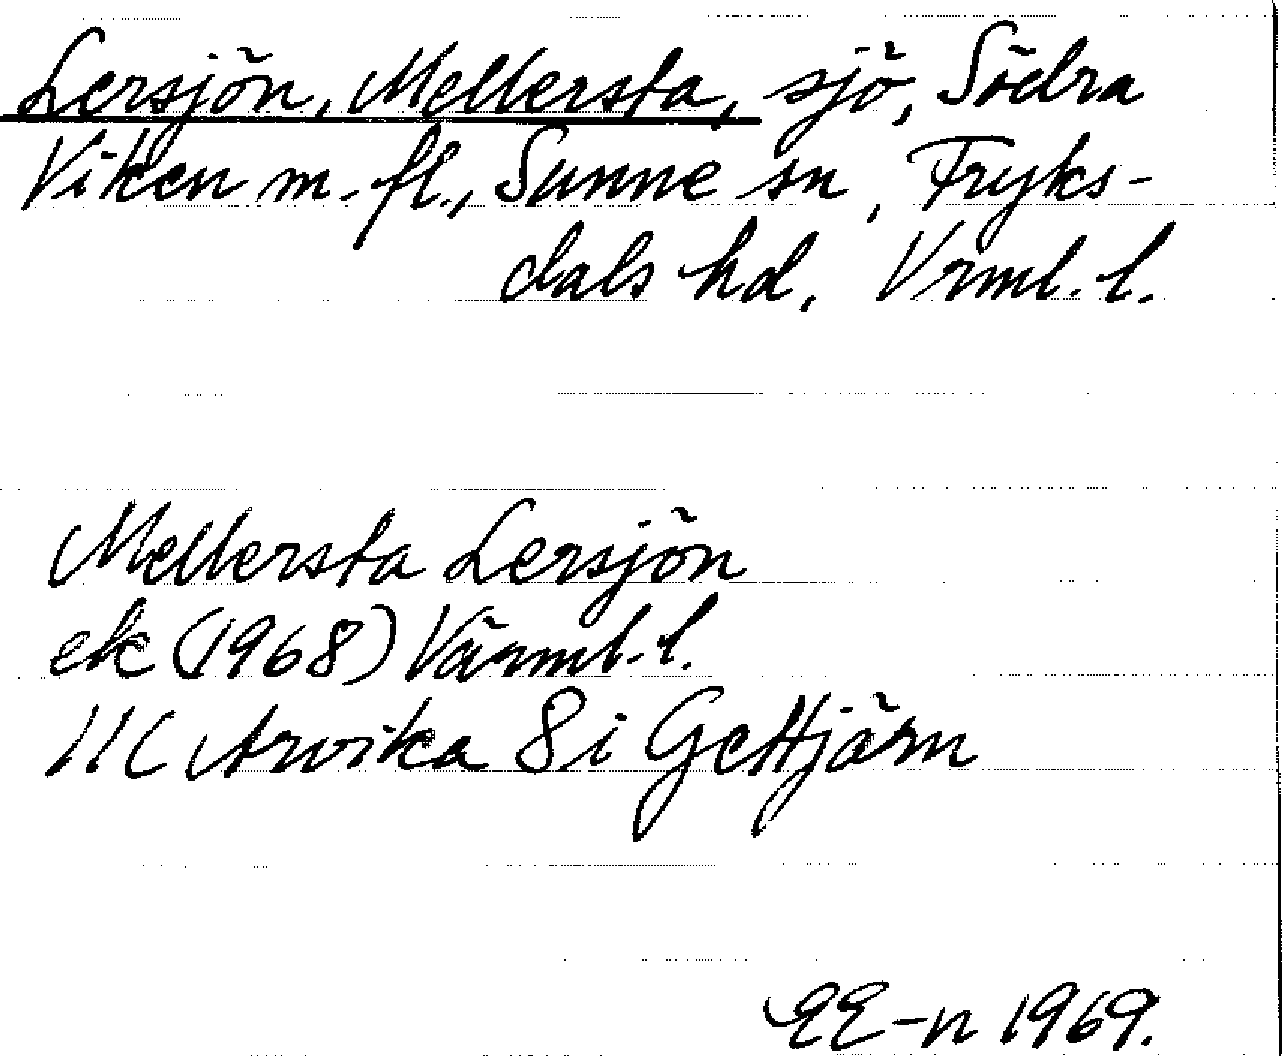 Lersjön, Mellersta, sjö, Södra
Viken m. fl., Sunne sn, Fryks-
dals hd, Vrml. l.
Mellersta Lersjön
ek (1968) Värml. l.
11C Arvika 8i Gettjärn
EE-n 1969.